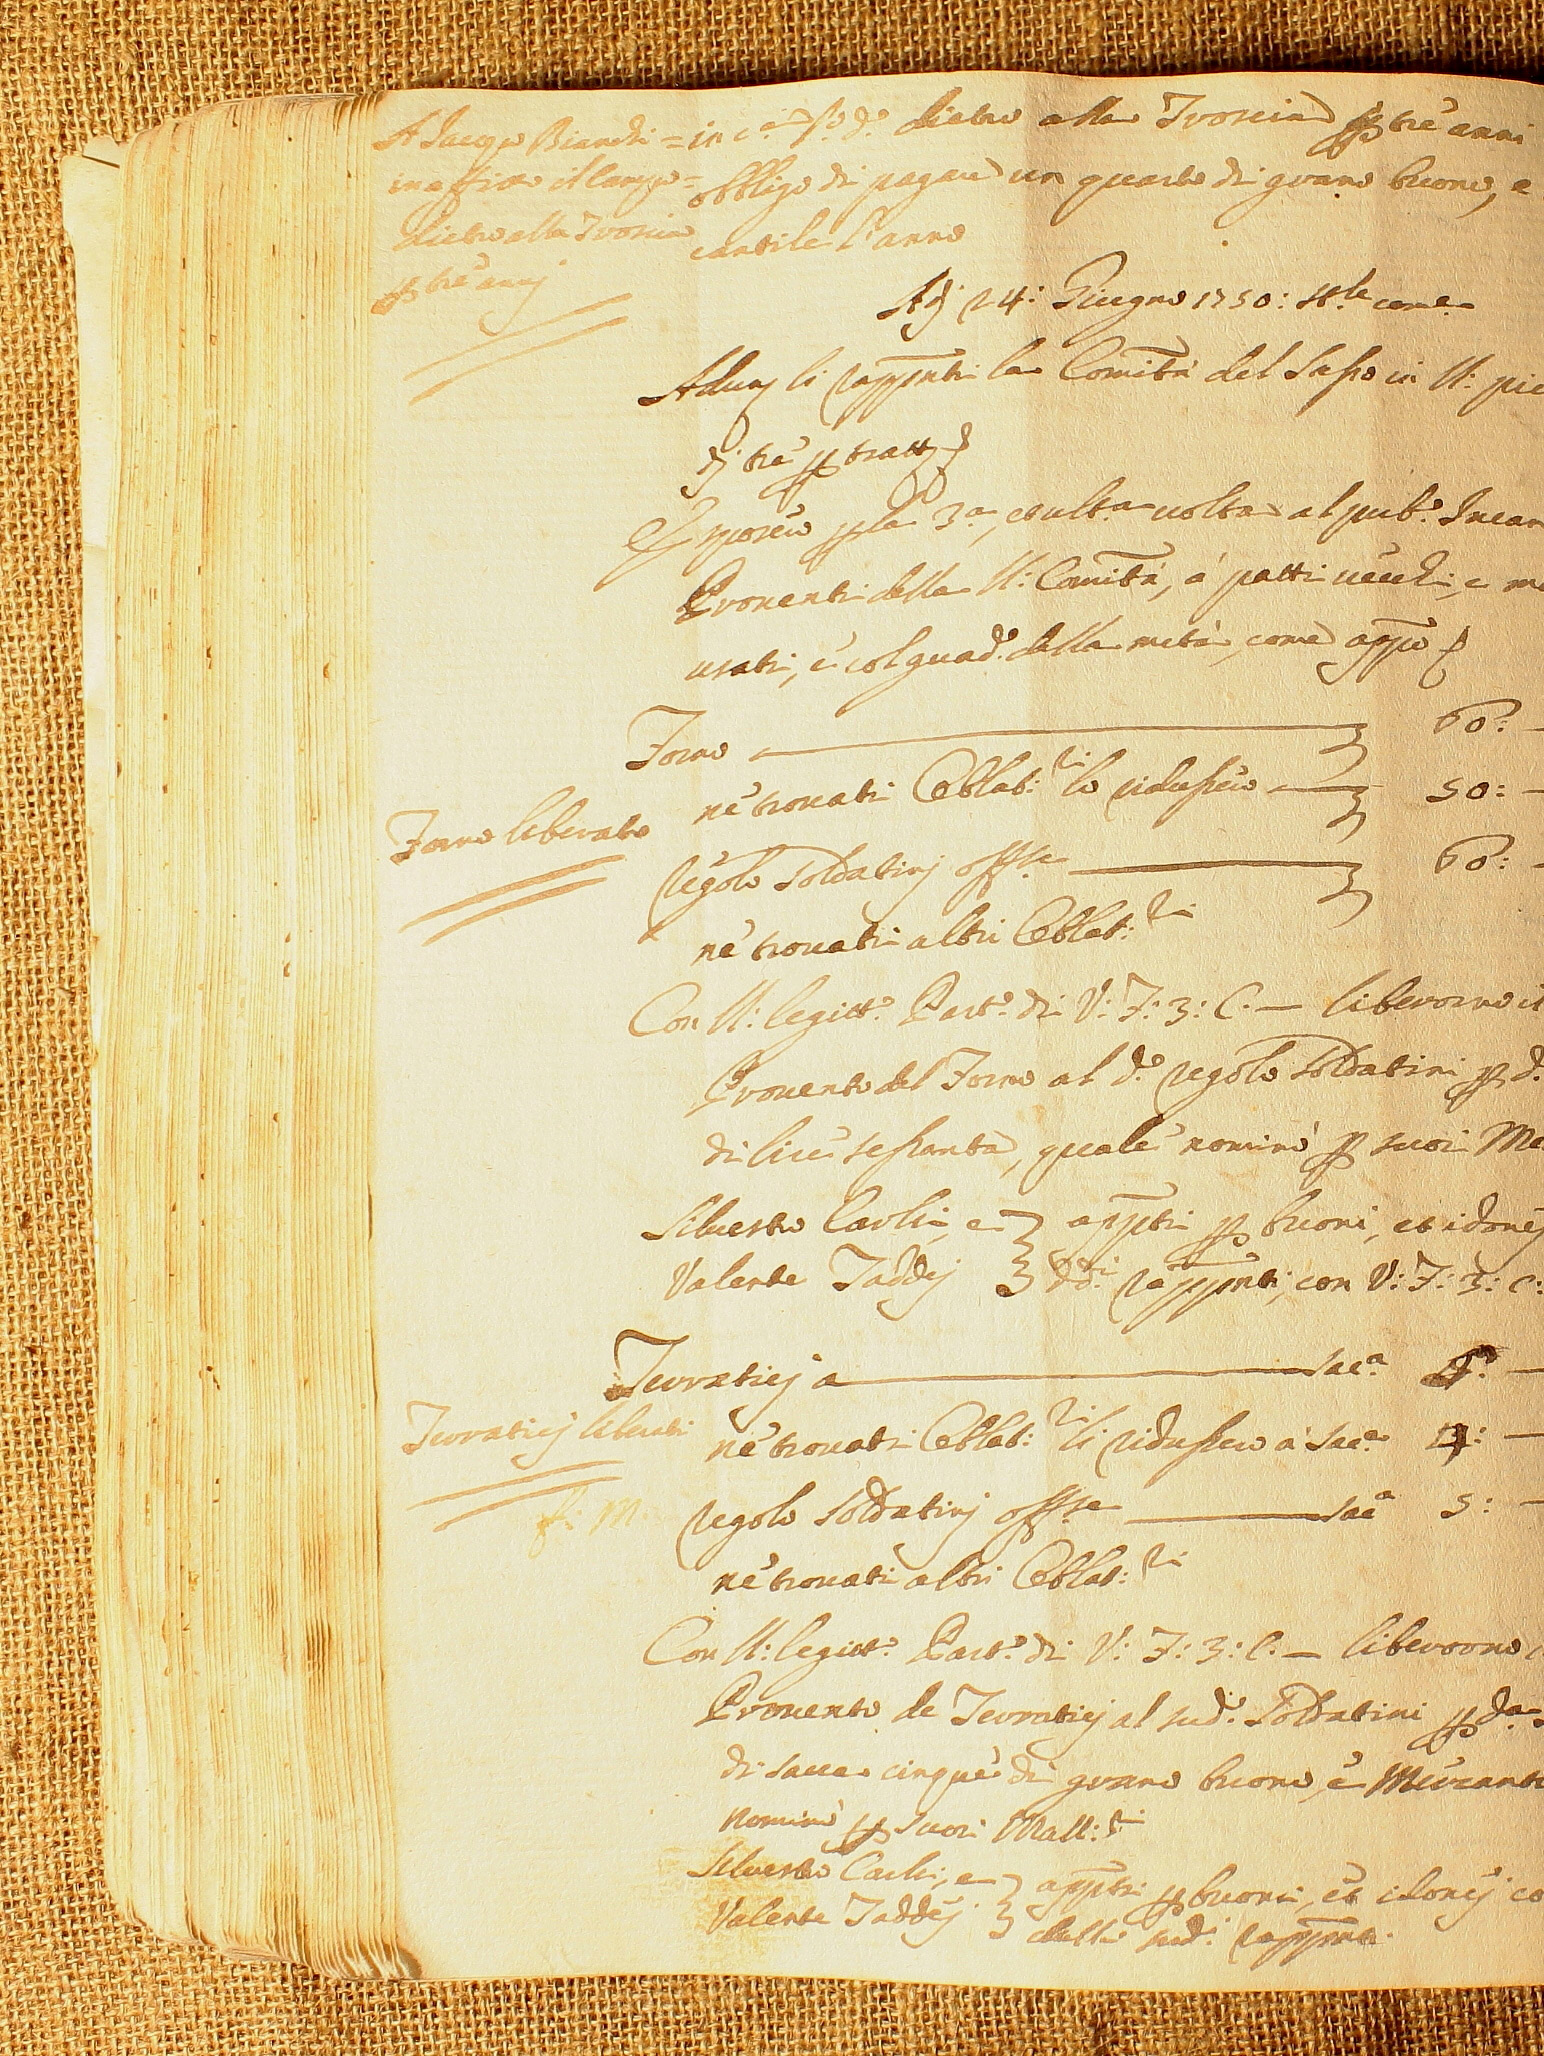 A Jacopo Bianchi =
in affitto il Campo =
dietro alla Troscia
p tré annj
in c.a f.o d.o dietro alla Troscia p tré anni
obbligo di pagare un quarto di grano buono, e
cantile l'anno
Adj 24: Giugno 1750: St.le come
Adunj li rapp̃nti la Comĩtà del Sasso in N: pie
dj tré p tratt
Esposero p la 3.a, et ult.a uolta al pub.o Incan
Prouenti della N: Comĩtà, á patti uecchi, e mo
usati, é col guad.o della metà, come app̃o
Forno 60:
né trouati Oblat:ri lo ridussero 50:
Forno liberato
Regolo Soldatinj offse 60:
né trouati altri Oblat:ri
Con N: legitt.o Part.o di V: F: 3: C. — liberorno il
Prouento del Forno al d.o Regolo Soldatini p d.
di lire sessanta, quale nominò p suoi Ma
Siluestro Carli, e app̃ti p buoni, et idonej
Valente Taddej dd:i rapp̃nti, con V: F: 3: C:
Terraticj a sac.a
Terraticj liberati
né trouati Oblat:ri li ridussero á sac.a
f: m.
Regolo Soldatinj offse sac.a 5:
né trouati altri Oblat:ri
Con N: legitt.o Part.o di V: F: 3: C. — liberorono
Prouento de Terraticj al sud.o Soldatini p d.a
di sacca cinque di grano buono, é Mercant
nominò p suoi Mall:ri
Siluestro Carli, e app̃ti p buoni, ét idonej co
Valente Taddej dalli sud.i rapp̃nti.